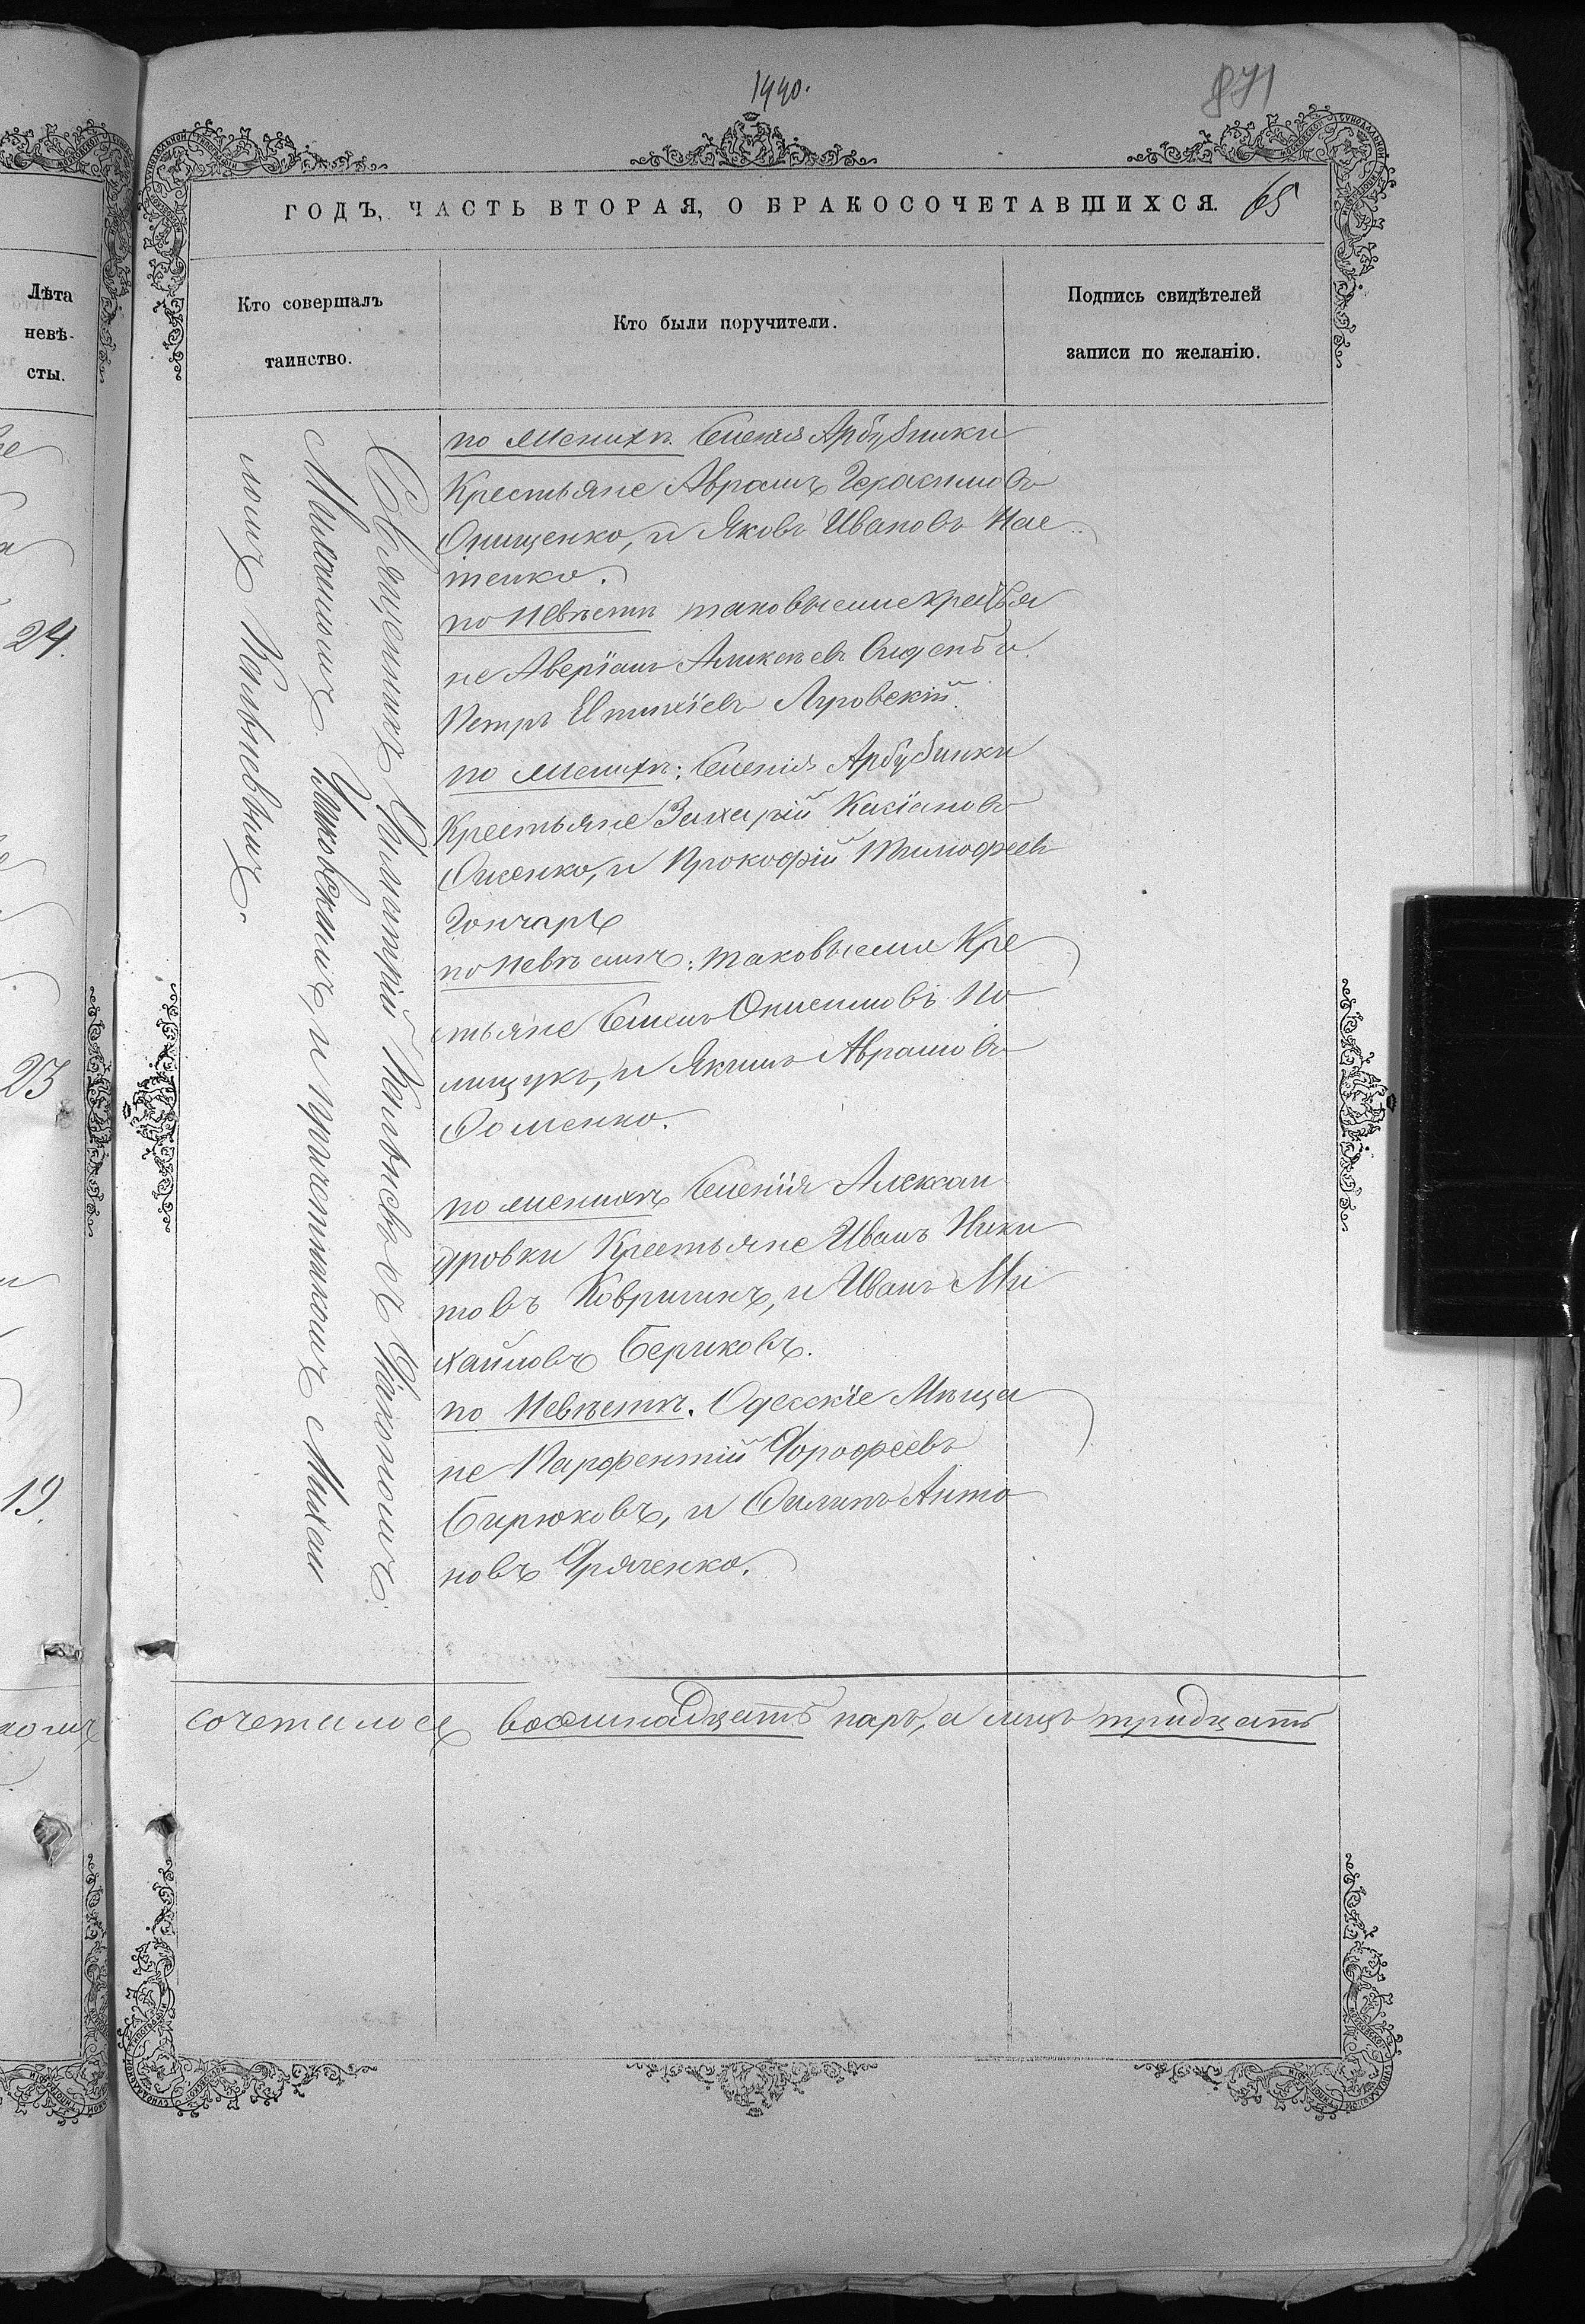 1440.
871
ГОДЪ, ЧАСТЬ ВТОРАЯ, О БРАКОСОЧЕТАВШИХСЯ.
65
Лѣта
невѣ-
сты.
24.
23
19.
Кто совершалъ
таинство.
Кто были поручители.
Подпись свидѣтелей
записи по желанію.
Священникъ Димитрій Кольневъ съ Діакономъ
Михаиломъ и причетникомъ Михаи
ломъ
по женихѣ. Селенія Арбузинки
Крестьяне Аврамъ Герасимовъ
Онищенко, и Яковъ Ивановъ Нас
тенко.
по Невѣстѣ таковыеже крестья
не Аверіанъ Аликсѣевъ и
Петръ Евтихіевъ Луговскій.
по женихѣ: Селенія Арбузинки
Крестьяне Захарій Касіановъ
и Прокофій Тимофеевъ
Гончаръ
по Невѣстѣ: таковыеже Кре
стьяне Семенъ Онисимовъ По
лищукъ, и Якимъ Аврамовъ
Фоменко.
по женихѣ Селенія Алексан
дровки Крестьяне Иванъ Ники
товъ Ковригинъ, и Иванъ Ми
хайловъ Бериковъ.
по Невѣстѣ. Одесскіе Мѣща
не Парфентій Дорофеевъ
Бирюковъ, и Филипъ Анто
новъ Дряченко.
сочеталося восемнадцать паръ, а лицъ тридцать